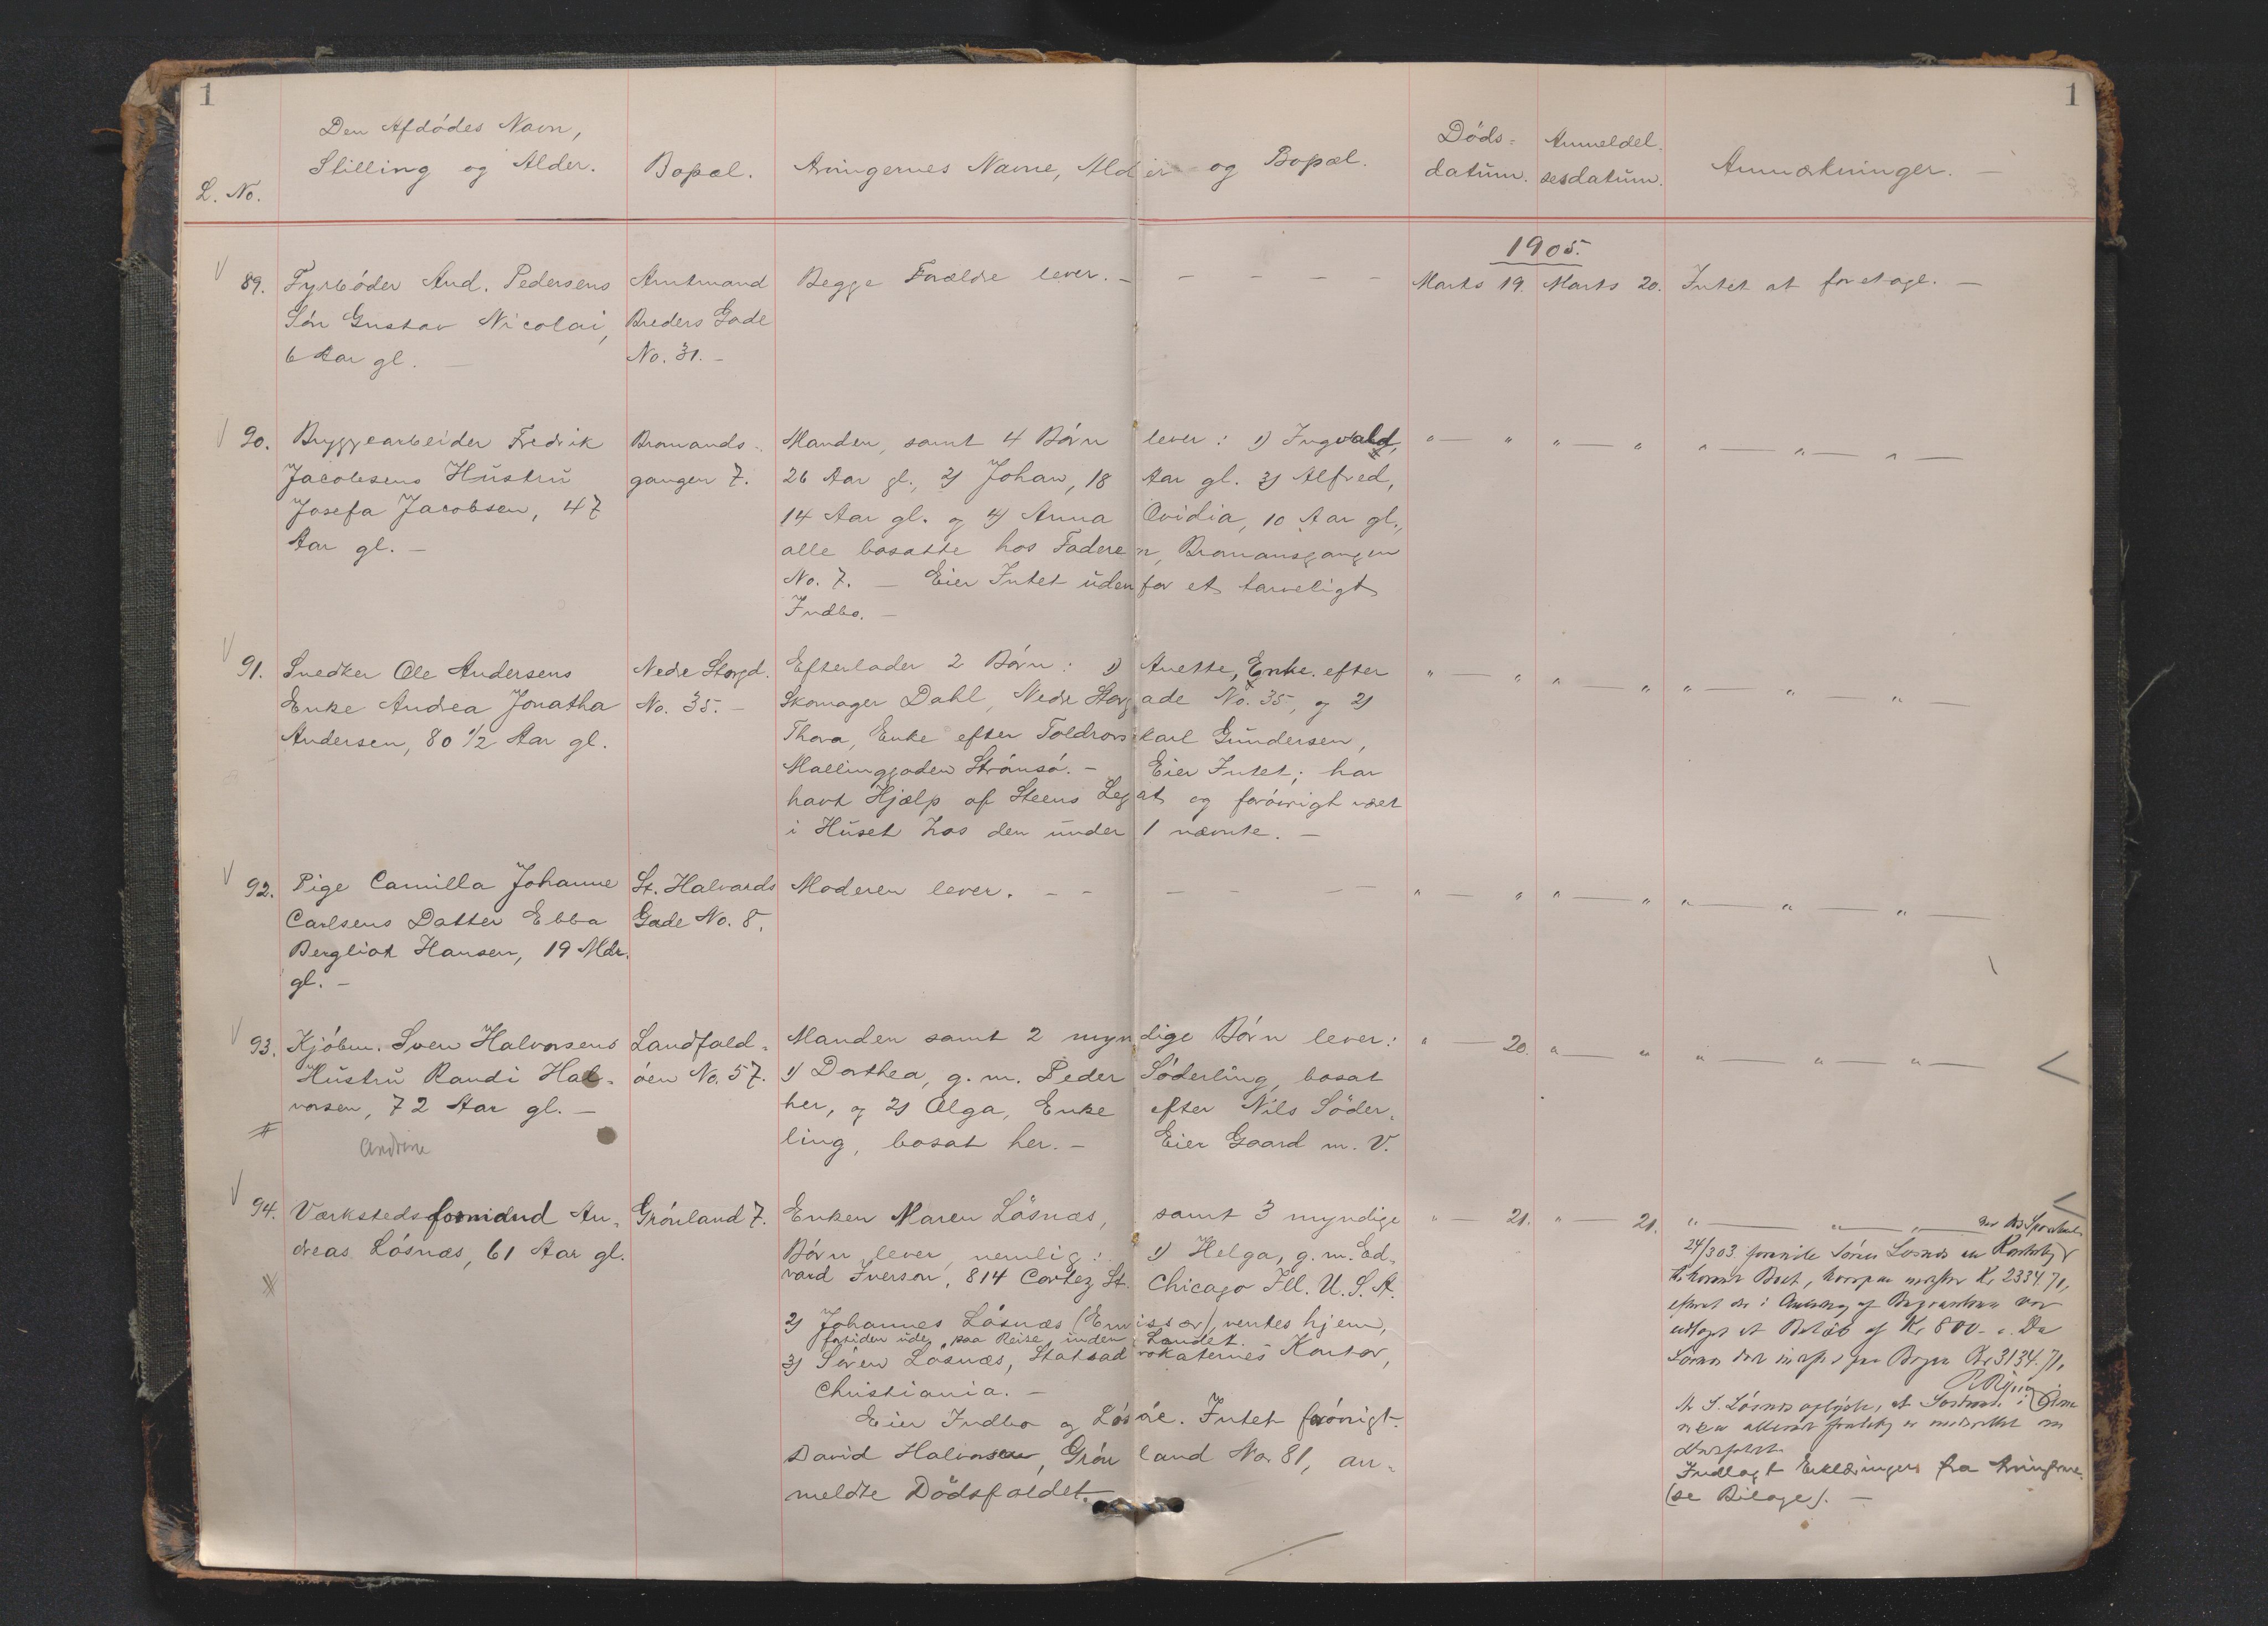 1
1
L. No.
Den Afdödes Navn,
Stilling og Alder.
Bopæl.
Arvingernes Navne, Alder og Bopæl.
Döds-
datum.
Anmeldel-
sesdatum.
Anmærkninger. —
1905.
89.
Fyrböder And. Pedersens
Sön Gustav Nicolai,
6 Aar gl. —
Amtmand
Breders Gade
No. 31. —
Begge Forældre lever. — — — — —
Marts 19.
Marts 20.
Intet at foretage. —
90.
Bryggearbeider Fredrik
Jacobsens Hustru
Josefa Jacobsen, 47
Aar gl. —
Bromands-
gangen 7.
Manden, samt 4 Börn lever: 1) Ingvald,
26 Aar gl., 2) Johan, 18 Aar gl. 3) Alfred,
14 Aar gl. og 4) Anna Ovidia, 10 Aar gl.,
alle bosatte hos Faderen, Bromansgangen
No. 7. — Eier Intet udenfor et tarveligt
Indbo. —
" — "
" — "
" — " — " —
91.
Snedker Ole Andersens
Enke Andrea Jonatha
Andersen, 80 1/2 Aar gl.
Nedre Storgd.
No. 35. —
Efterlader 2 Börn: 1) Anette, Enke efter
Skomager Dahl, Nedre Storgade No. 35, og 2)
Thora, Enke efter Toldrorskarl Gundersen,
Mallinggaden Strömsö. — Eier Intet; har
havt Hjælp af Steens Legat og forövrigt været
i Huset hos den under 1 nævnte. —
" — "
" — "
" — " — " —
92.
Pige Camilla Johanne
Carlsens Datter Ebba
Bergliot Hansen, 19 Mdr.
gl. —
St. Halvards
Gade No. 8.
Moderen lever. — — — — — —
" — "
" — "
" — " — " —
93.
Kjöbm. Sven Halvorsens
Hustru Randi Hal-
vorsen, 72 Aar gl. —
Andrine
Landfald-
öen No. 57.
Manden samt 2 myndige Börn lever:
1) Dorthea, g. m. Peder Söderling, bosat
her, og 2) Olga, Enke efter Nils Söder-
ling, bosat her. — Eier Gaard m. V.
" — 20.
" — "
" — " — " —
94.
Værkstedsformand An-
dreas Lösnæs, 61 Aar gl.
Grönland 7.
Enken Maren Lösnæs, samt 3 myndige
Börn lever, nemlig: 1) Helga, g. m. Ed-
vard Iverson, 814 Cortez St. Chicago Ill. U. S. A.
2) Johannes Lösnæs (Emissær), ventes hjem,
fortiden ude paa Reise inden Landet.
3) Sören Lösnæs, Statsadvokaternes Kontor,
Christiania. —
Eier Indbo og Lösöre. Intet forövrigt.
David Halvorsen, Grönland No. 81, an-
meldte Dödsfaldet.
" — 21.
" — 21.
" — " — "
24/3 03 Sören Lösnæs en
Boet, Kr 2334.71,
af Begravelsen var
udlagt et Belöb af Kr 800. Da
paa Kr 3134.71,
S. Lösnæs oplyste, at
Indlagt Erklæringer fra Arvingerne.
(se Bilage). —